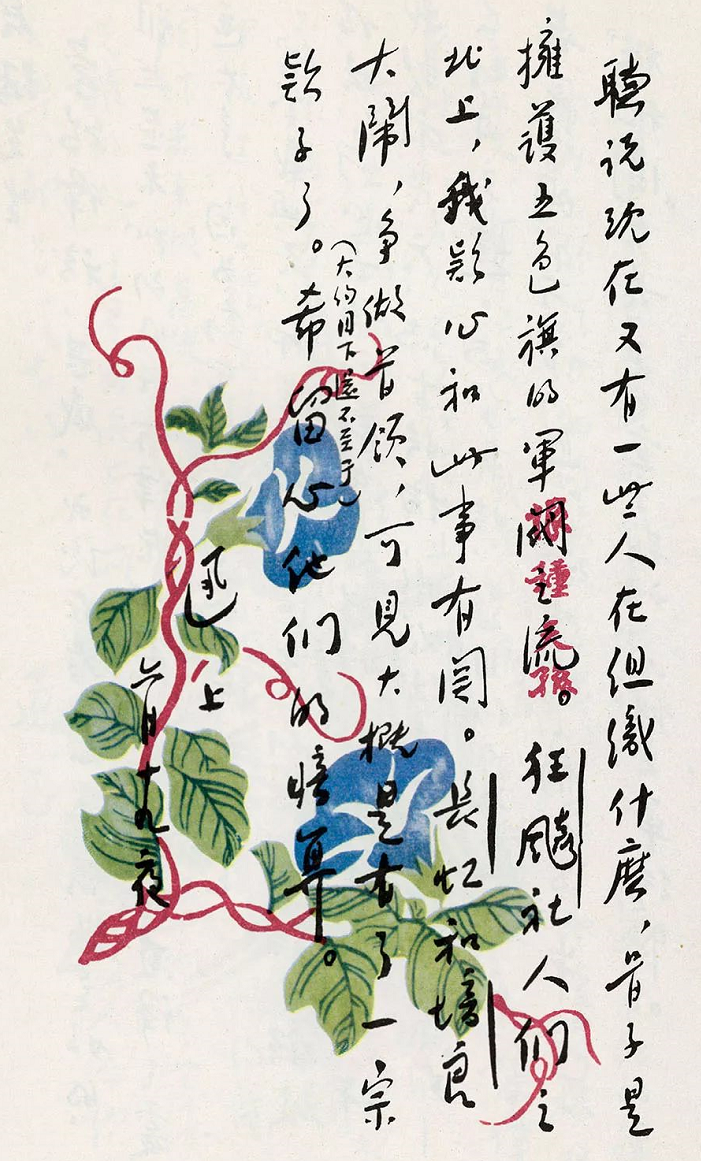 聽说现在又有一些人在组織什麽，骨子是
擁護五色旗的軍閥之流。狂飈社人们之
北上，我疑心和此事有関。長虹和培良
大鬧，争做首领，可見大概是有了一宗
欵子了。（大约目下還不至于）希留心他们的暗算。
迅上
六月十九夜